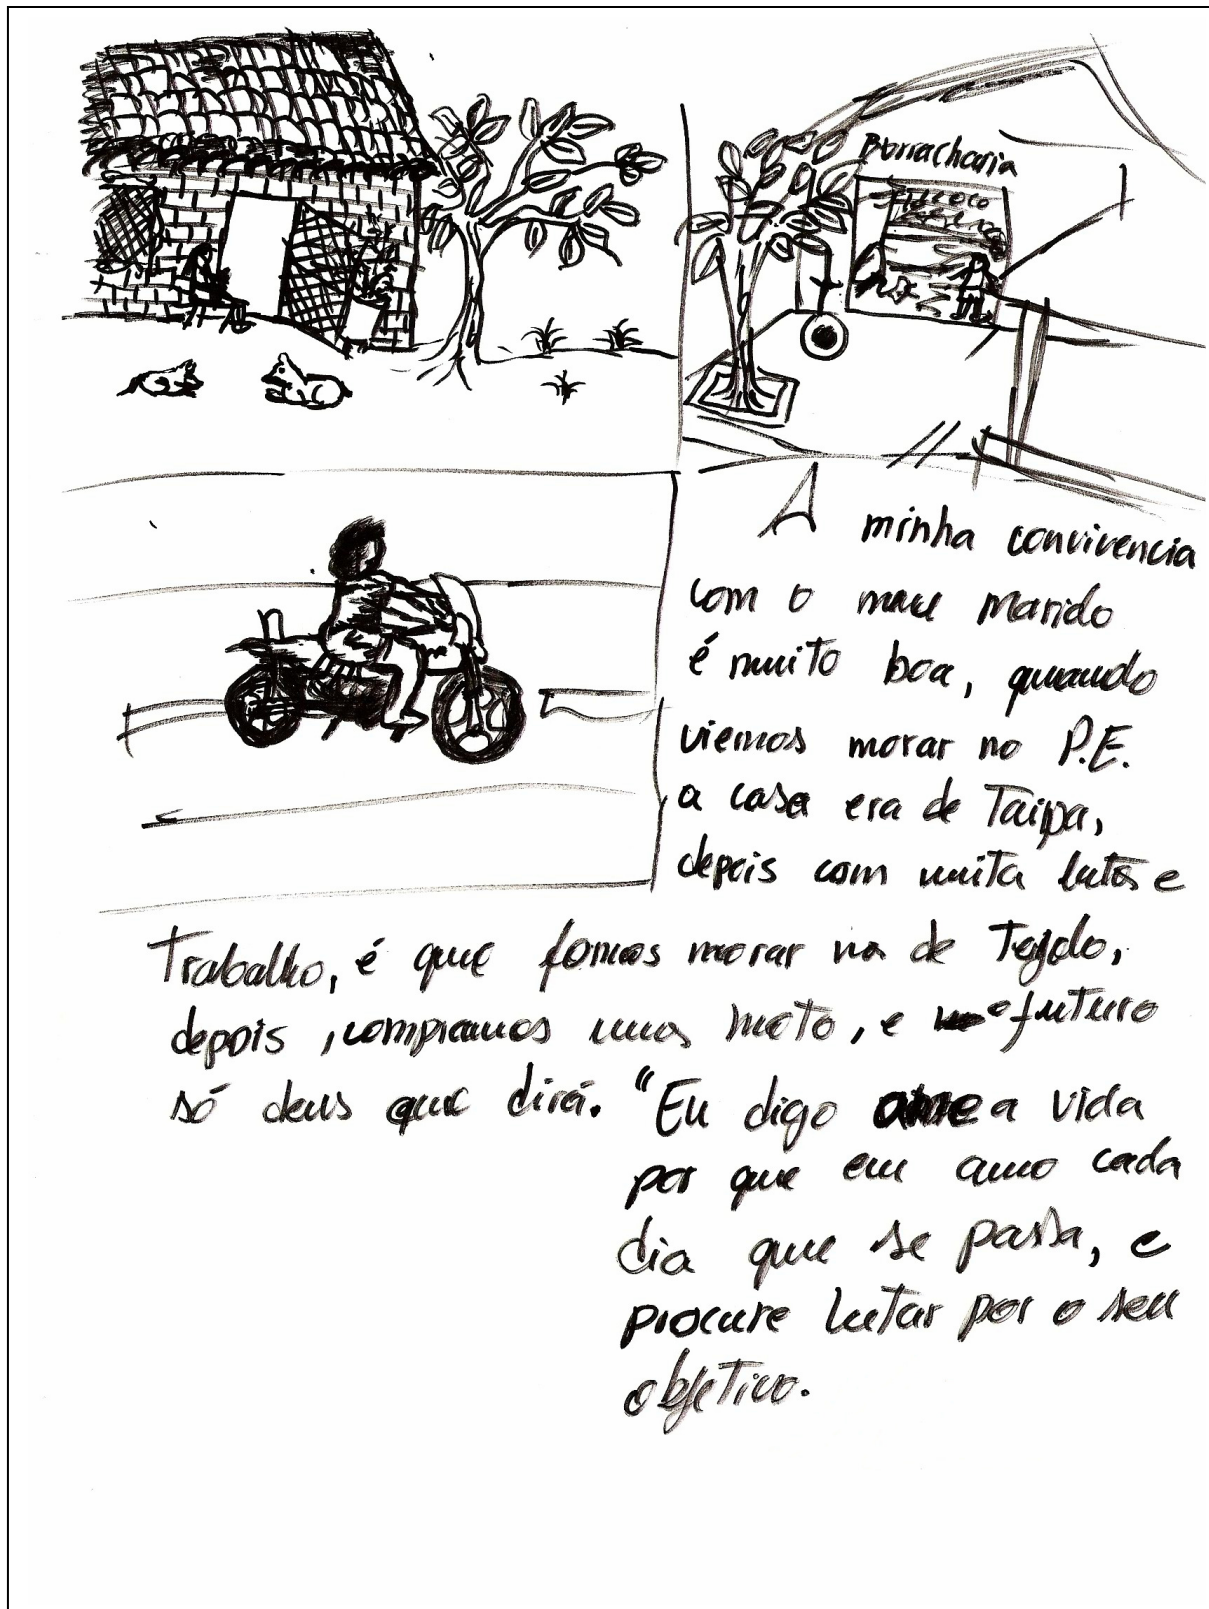 Borracharia
A minha convivencia
com o meu marido
é muito boa, quando
viemos morar no P.E.
a casa era de Taipa,
depois com muita luta e
Trabalho, é que fomos morar na de Tejolo,
depois, compramos uma moto, e o futuro
só deus que dirá. "Eu digo ame a vida
por que eu amo cada
dia que se passa, e
procure lutar por o seu
objetivo.